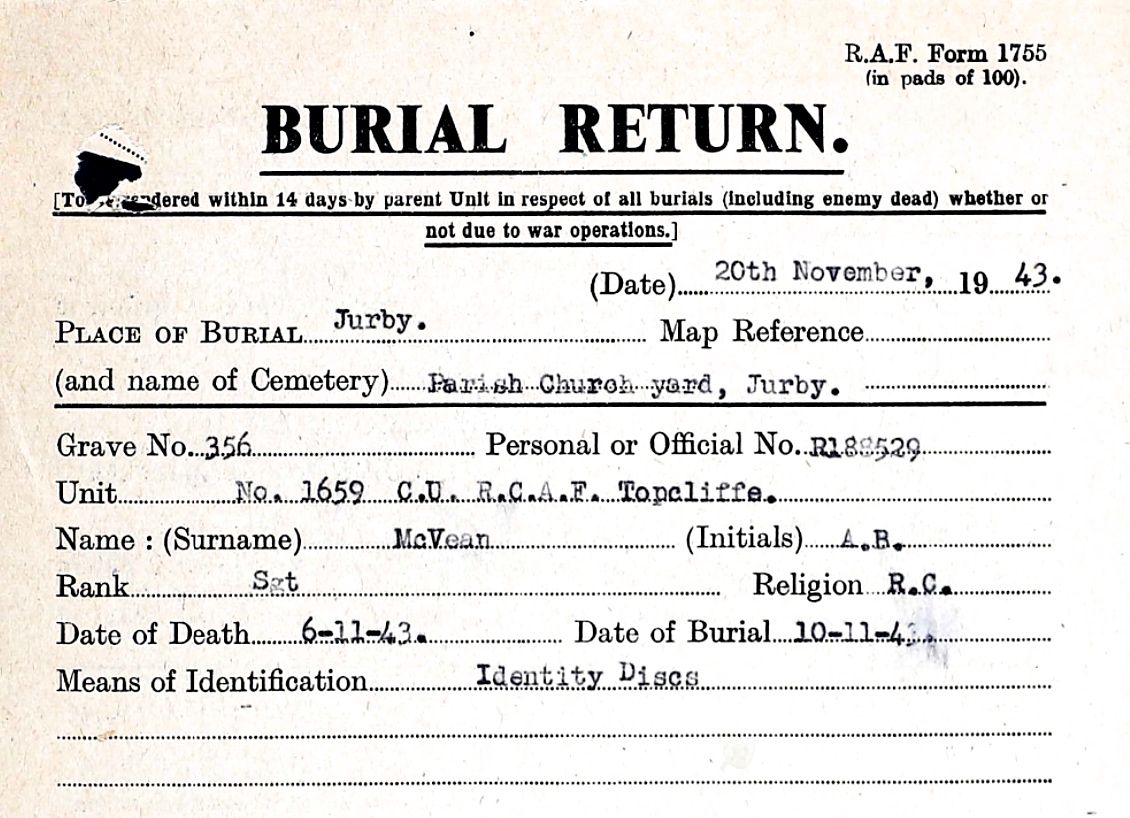 R.A.F. Form 1755
(in pads of 100).
BURIAL RETURN.
[To rendered within 14 days by parent Unit in respect of all burials (including enemy dead) whether or
not due to war operations.]
(Date) 20th November, 1943.
PLACE OF BURIAL Jurby. Map Reference
(and name of Cemetery) Parish Church yard, Jurby.
Grave No. 356 Personal or Official No. R188529
Unit No. 1659 C.U. R.C.A.F. Topcliffe.
Name : (Surname) McVean (Initials) A.B.
Rank Sgt Religion R.C.
Date of Death 6-11-43. Date of Burial 10-11-43.
Means of Identification Identity Discs